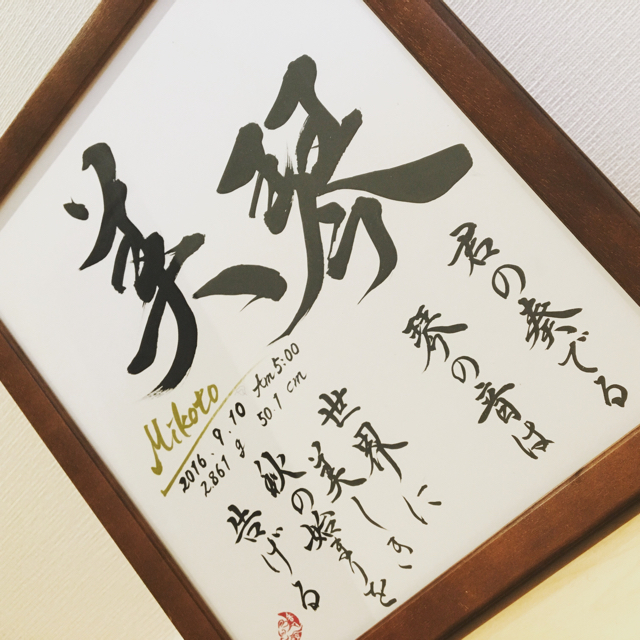 美琴
君の奏でる
琴の音は
世界に
美しき
秋の始まりを
告げる
Mikoto
2016.9.10 Am5:00
2861g 50.1cm